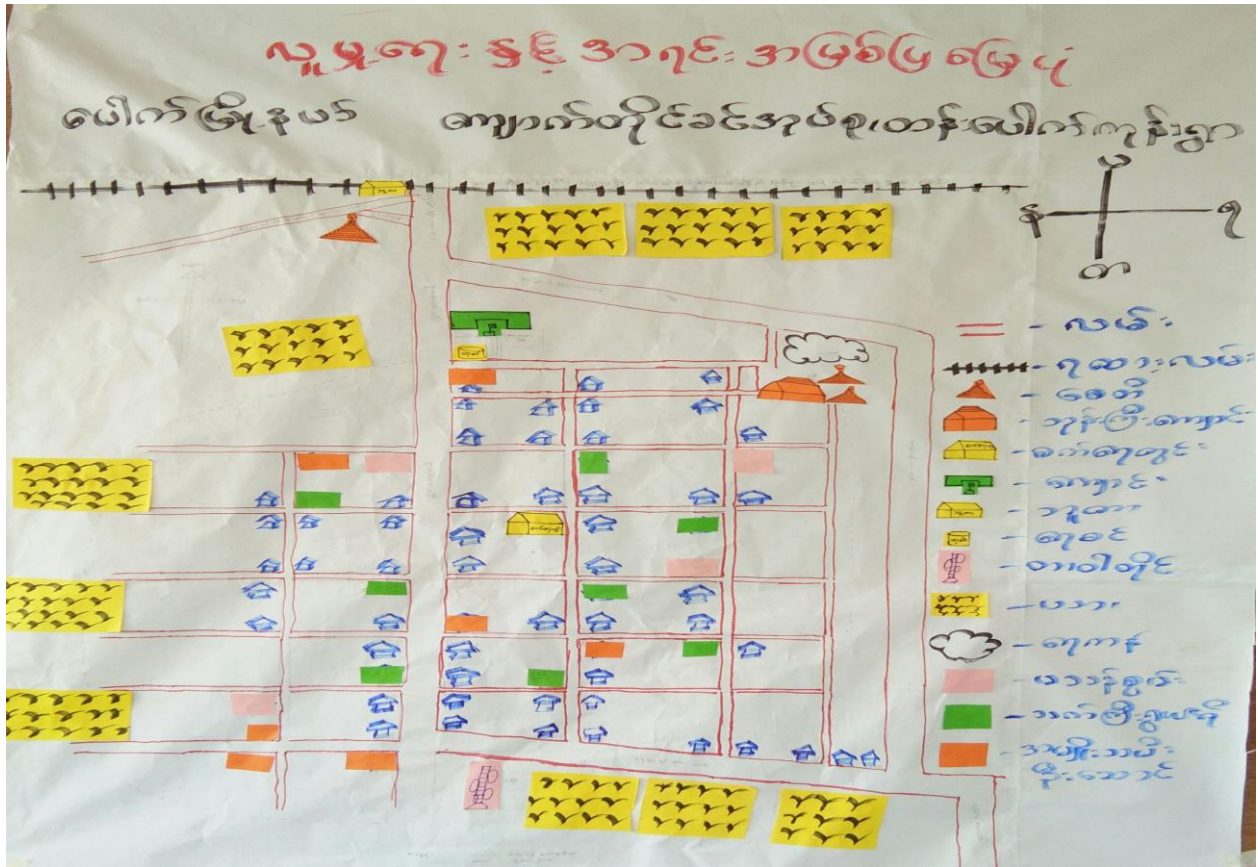 လူမှုရေး နှင့် အရင်းအမြစ်ပြ မြေပုံ
ပေါက်မြို့နယ် ကျောက်တိုင်ခင်အုပ်စု၊ တန်းပေါက်ကုန်းရွာ
မ
န
ရ
တ
ဘူတာ
- လမ်း
- ရထားလမ်း
- စေတီ
- ဘုန်းကြီးကျောင်း
- စက်ရေတွင်း
- ကျောင်း
ဘူတာ
- ဘူတာ
- ရေစင်
- တာဝါတိုင်
- ယာ
- ရေကန်
- မသန်စွမ်း
- သက်ကြီးရွယ်အို
- အမျိုးသမီး
ဦးဆောင်